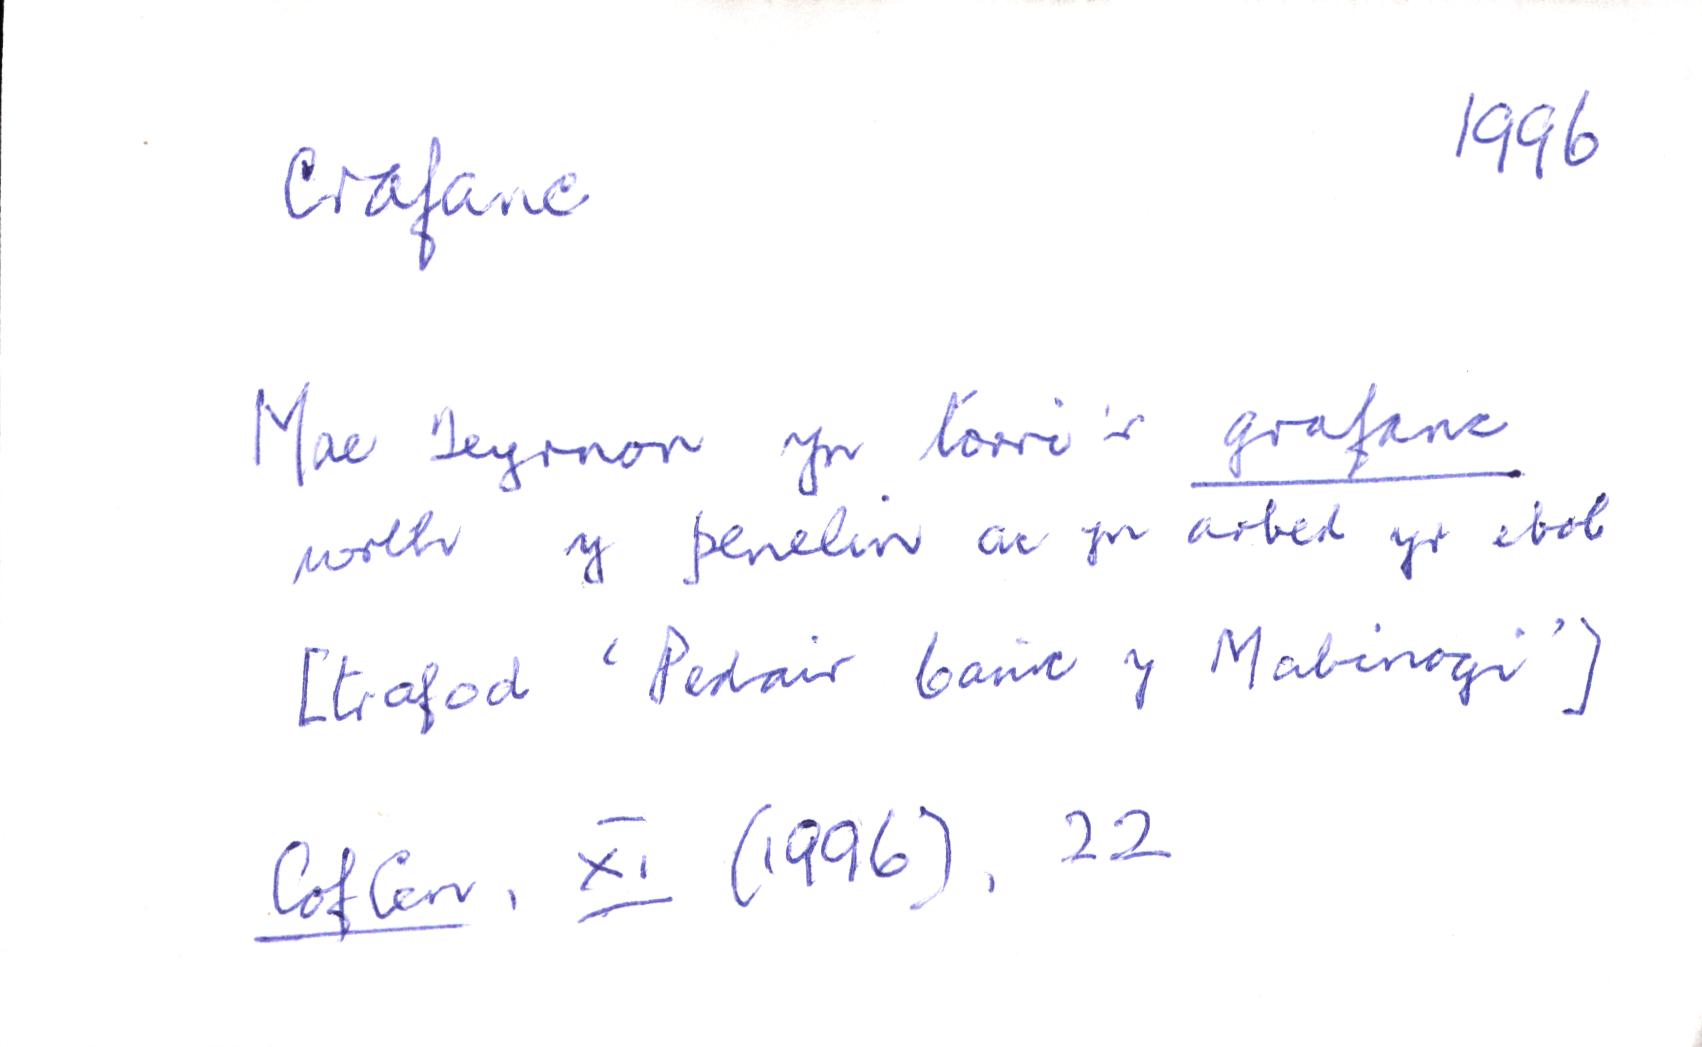 1996
Crafanc
Mae Teyrnon yn torri'r grafanc
wrth y penelin ac yn arbed yr ebol
[trafod 'Pedair Cainc y Mabinogi']
Cof Cen, XI (1996), 22